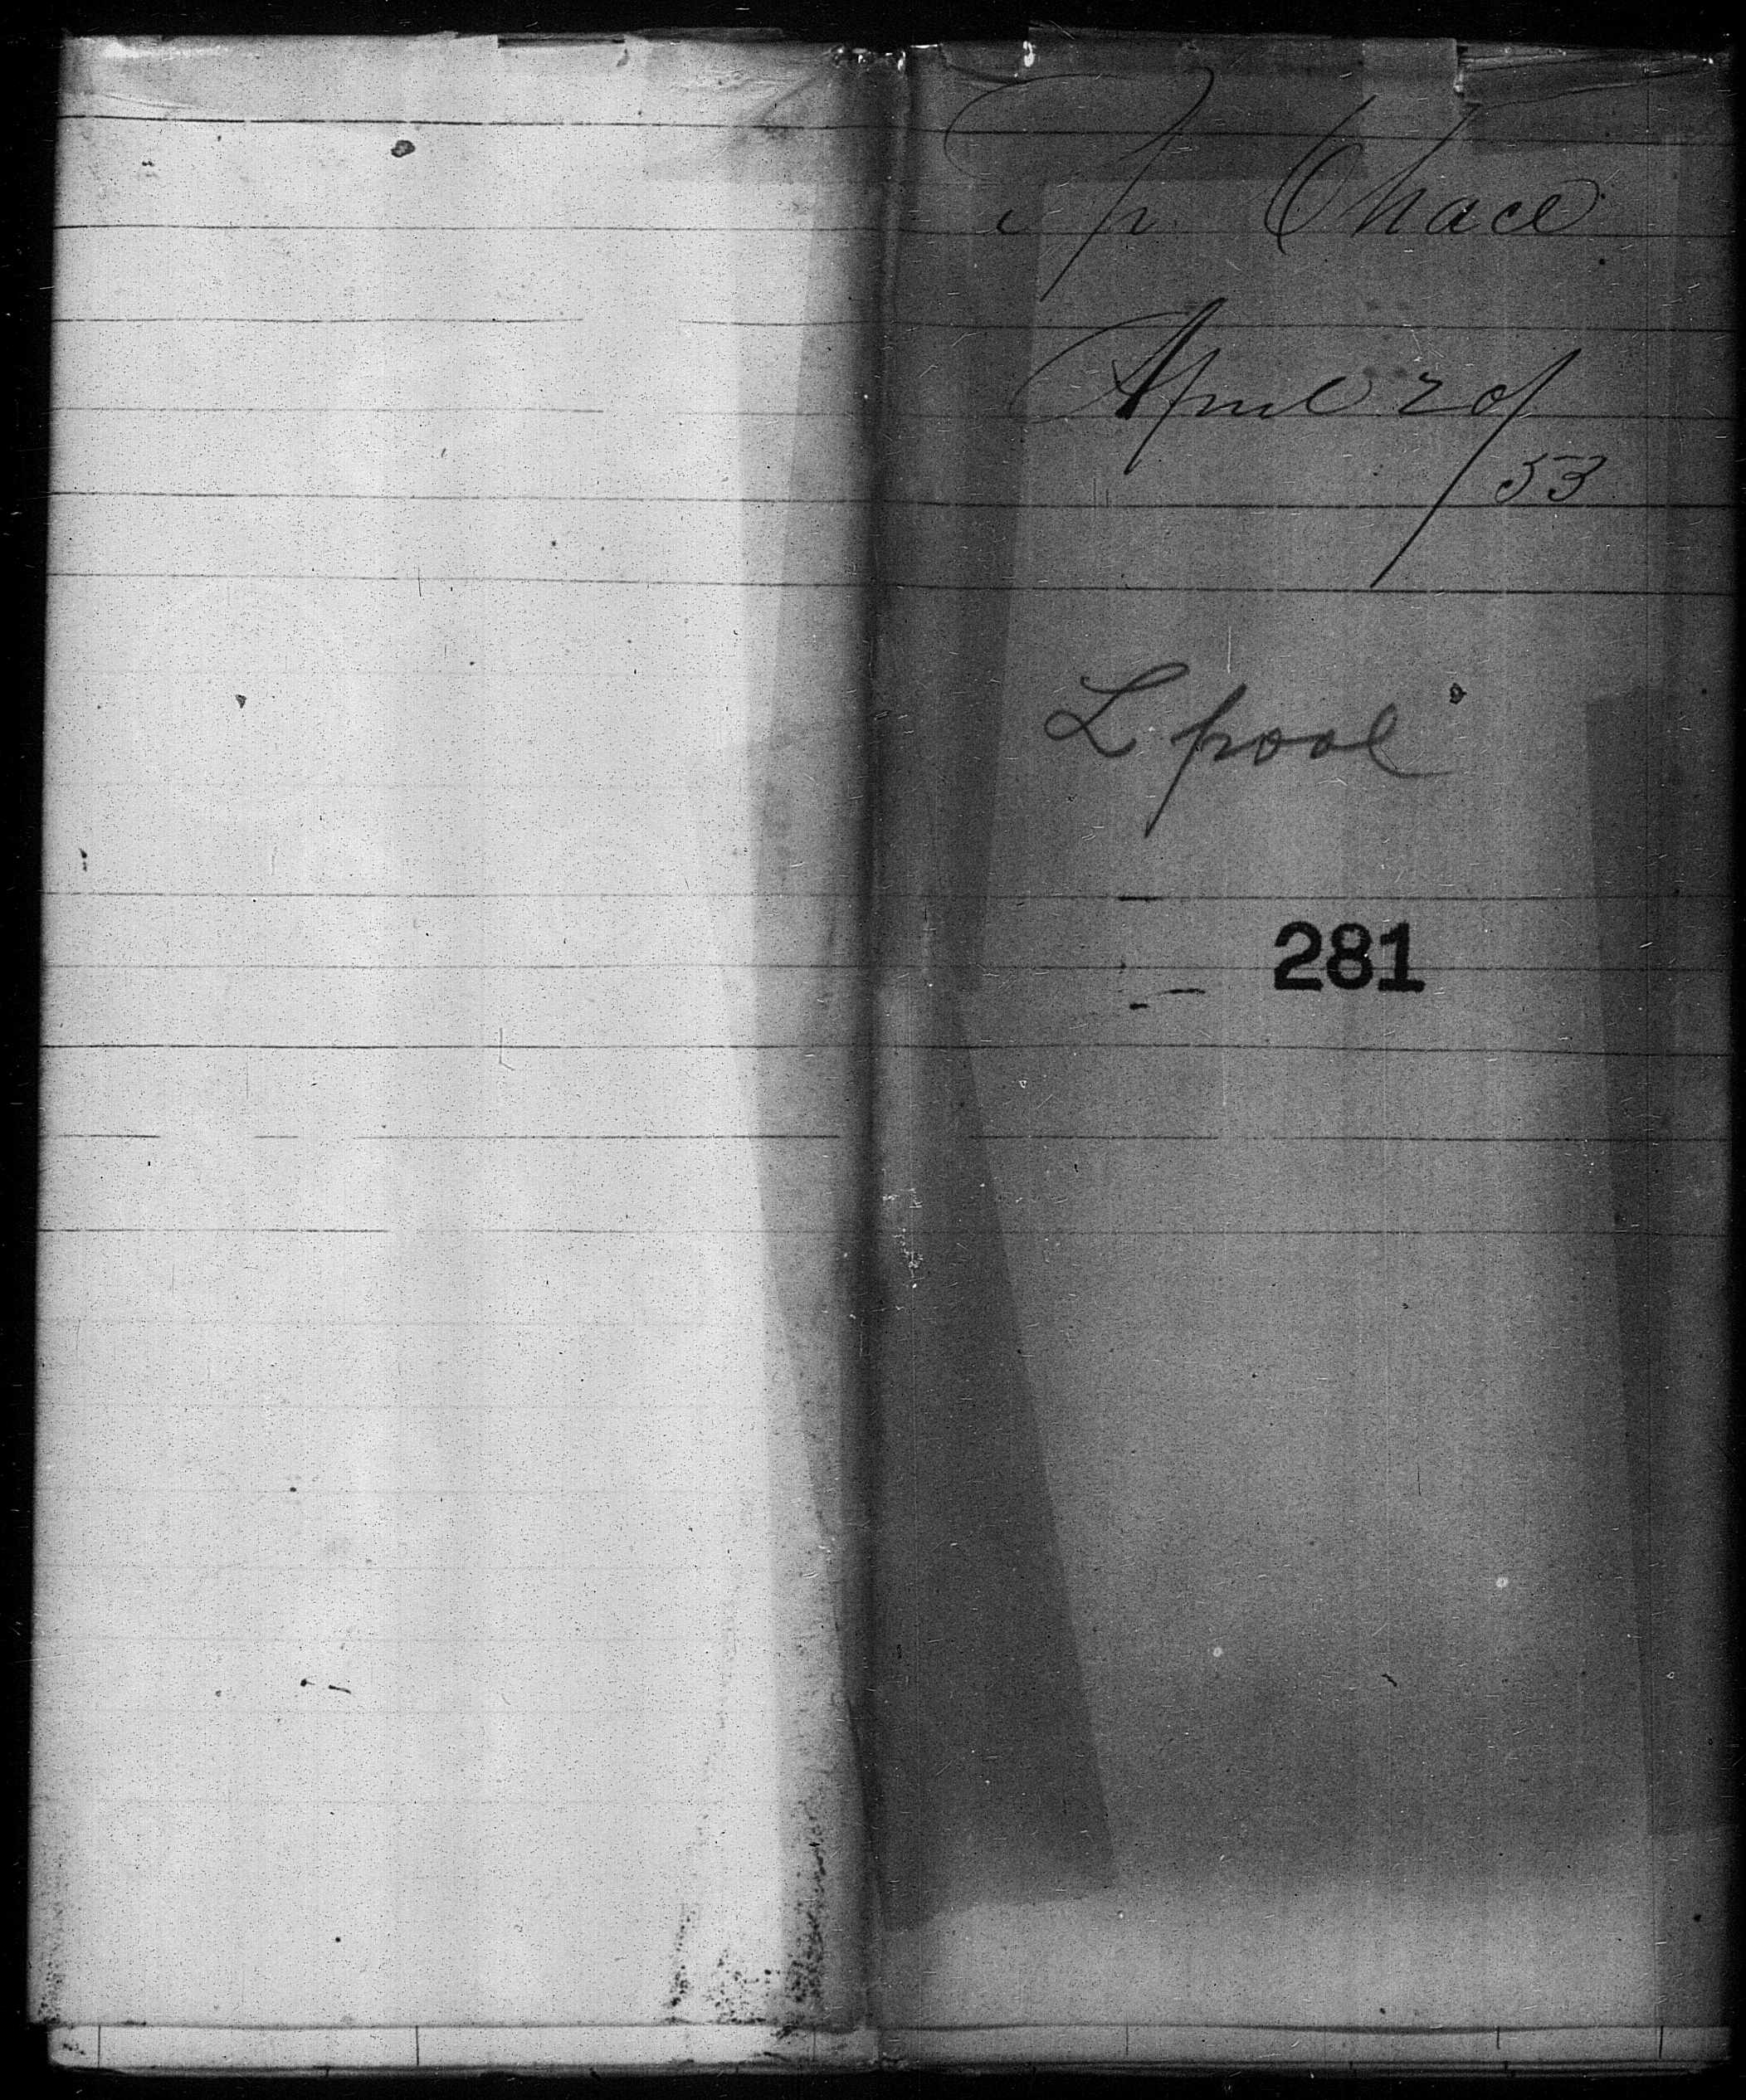 Sh. Chace
April 2d/
53
L. pool
281